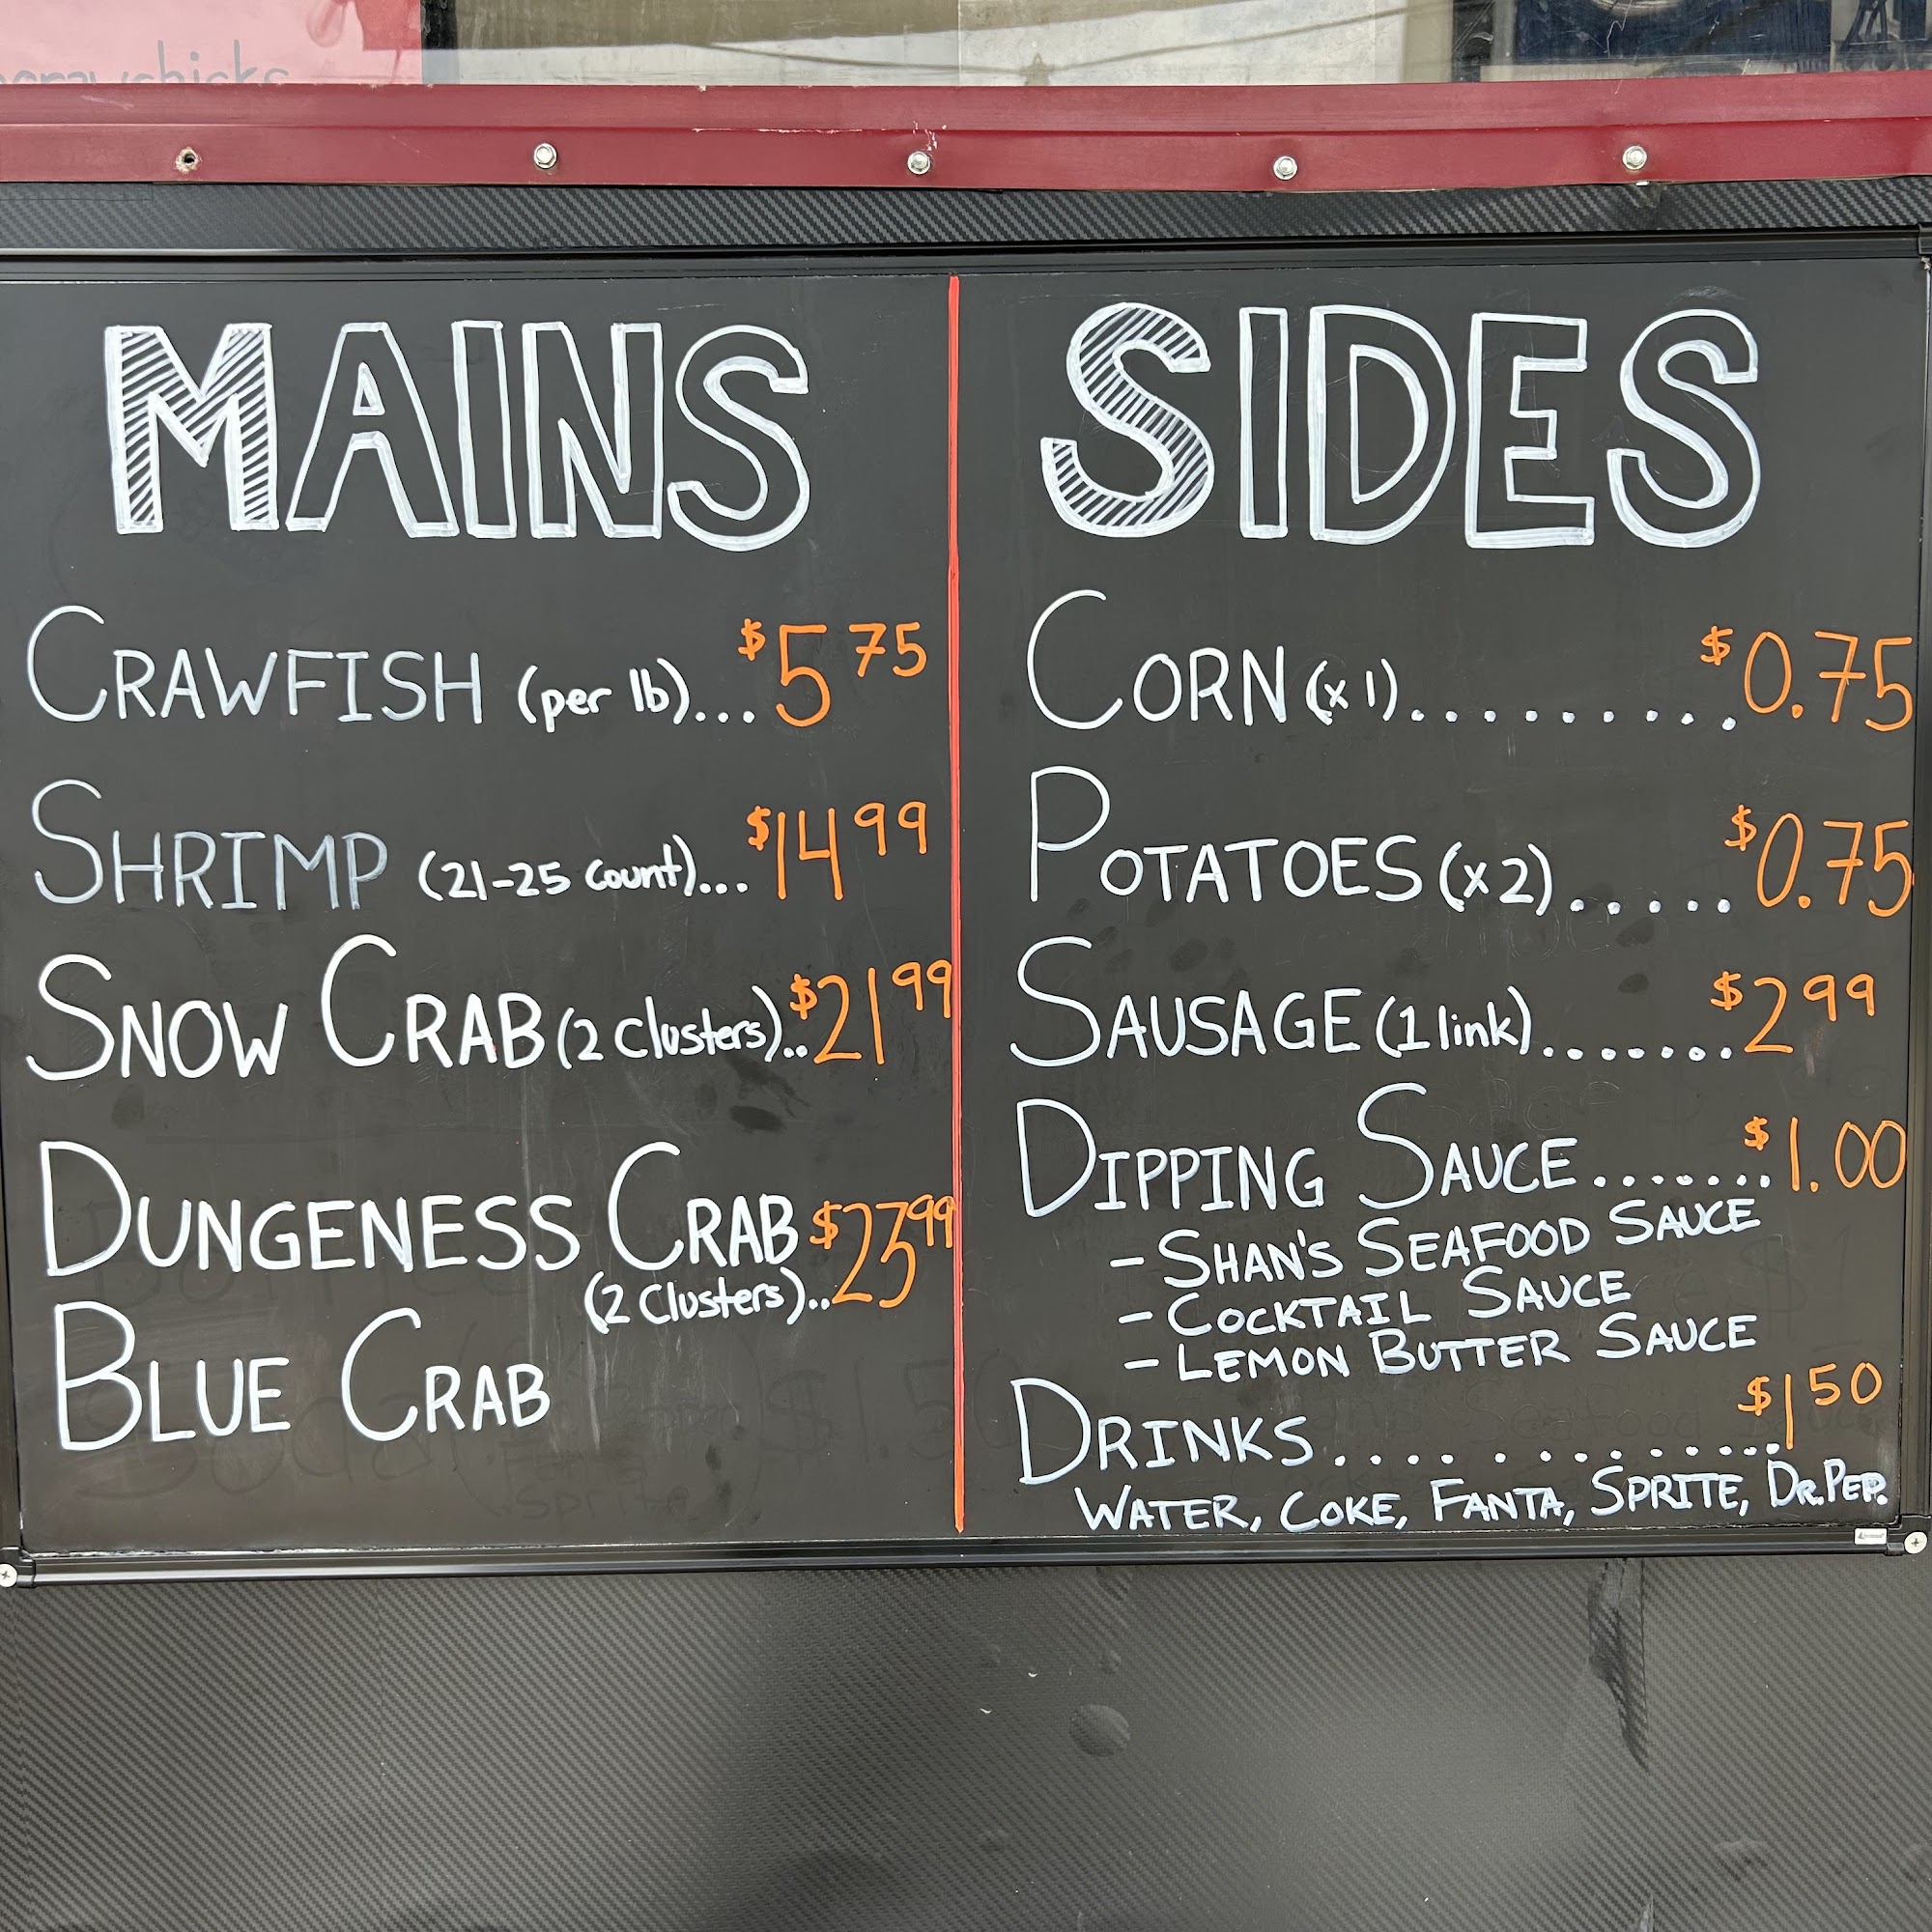 MAINS
CRAWFISH (per lb)...$5 75
SHRIMP (21-25 count)...$14 99
SNOW CRAB (2 Clusters)..$21 99
DUNGENESS CRAB $23 99
(2 Clusters)..
BLUE CRAB
SIDES
CORN (x1)..........$0.75
POTATOES (x2).....$0.75
SAUSAGE (1 link).......$2 99
DIPPING SAUCE.......$1.00
- SHAN'S SEAFOOD SAUCE
- COCKTAIL SAUCE
- LEMON BUTTER SAUCE
DRINKS..............$1 50
WATER, COKE, FANTA, SPRITE, DR. PEP.